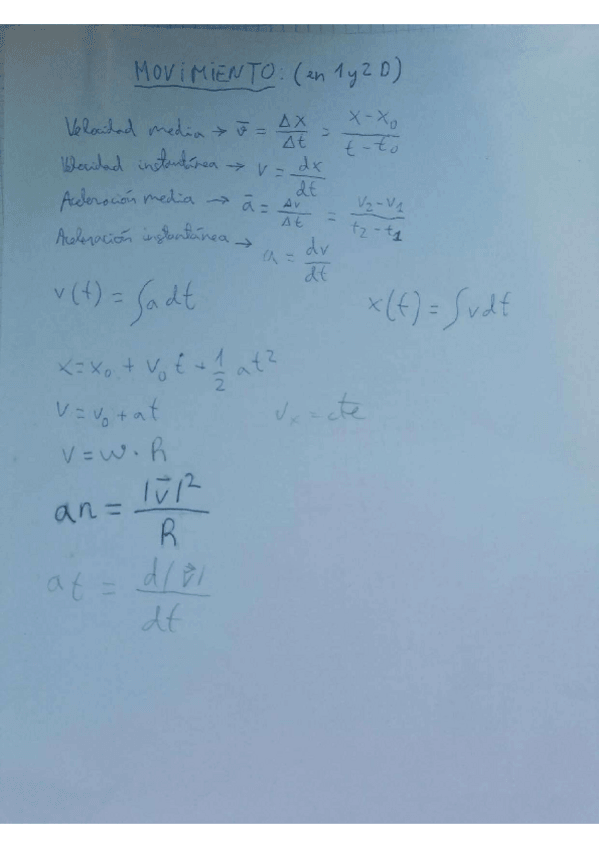 MOVIMIENTO: (en 1 y 2 D)
Velocidad media → v̄ = Δx/Δt = (x-x₀)/(t-t₀)
Velocidad instantánea → v = dx/dt
Aceleración media → ā = Δv/Δt = (v₂-v₁)/(t₂-t₁)
Aceleración instantánea → a = dv/dt
v(t) = ∫a dt x(t) = ∫v dt
x = x₀ + v₀ t + 1/2 at²
v = v₀ + at vₓ = cte
v = w · R
an = |v⃗|²/R
at = d|v⃗|/dt